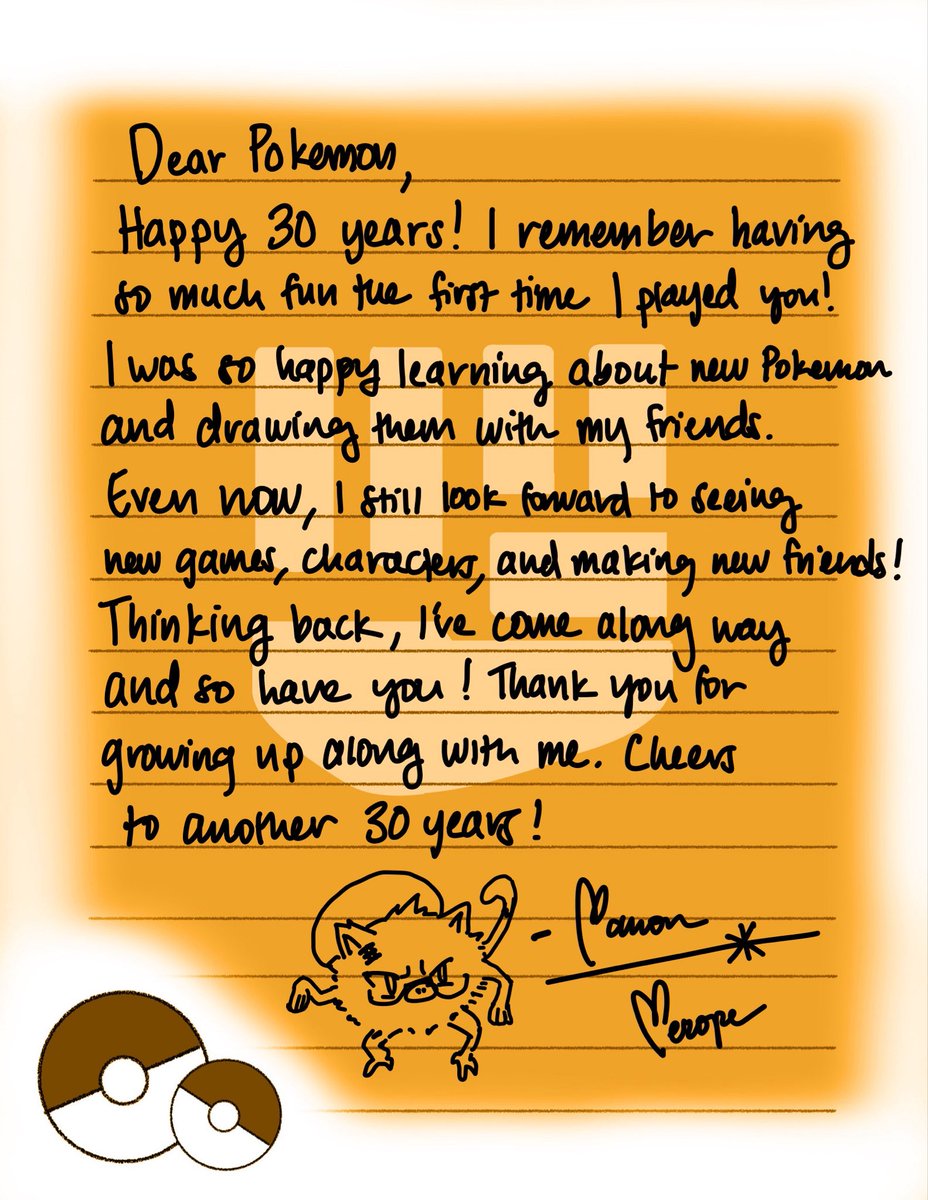 Dear Pokemon,
Happy 30 years! I remember having
so much fun the first time I played you!
I was so happy learning about new Pokemon
and drawing them with my friends.
Even now, I still look forward to seeing
new games, characters, and making new friends!
Thinking back, I've come along way
and so have you! Thank you for
growing up along with me. Cheers
to another 30 years!
- Manon
Merope